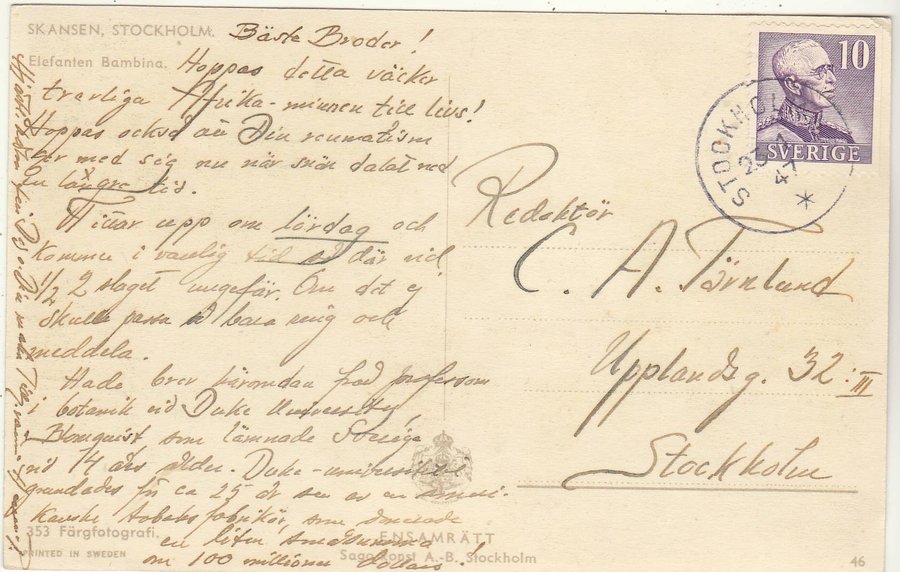 SKANSEN, STOCKHOLM.
Elefanten Bambina.
Bäste Broder!
Hoppas detta väcker
trevliga Afrika-minnen till livs!
Hoppas också att Din reumatism
ger med sig nu när snön dalat ned
en längre tid.
Tittar upp om lördag och
kommer i vanlig tid så där vid
1/2 2 slaget ungefär. Om det ej
skulle passa så bara ring och
meddela.
Hade brev häromdan från professorn
i botanik vid Duke University,
Blomquist som lämnade Sverige
vid 14 års ålder. Duke-universitetet
grundades för ca 25 år sen av en ameri-
kansk tobaksfabrikör, som donerade
en liten smådumma
om 100 millioner dollars!
353 Färgfotografi.
PRINTED IN SWEDEN
ENSAMRÄTT
Sagokonst A.-B. Stockholm
46
10
SVERIGE
STOCKHOLM
47
Redaktör
C. A. Törnlund
Upplandsg. 32: III
Stockholm